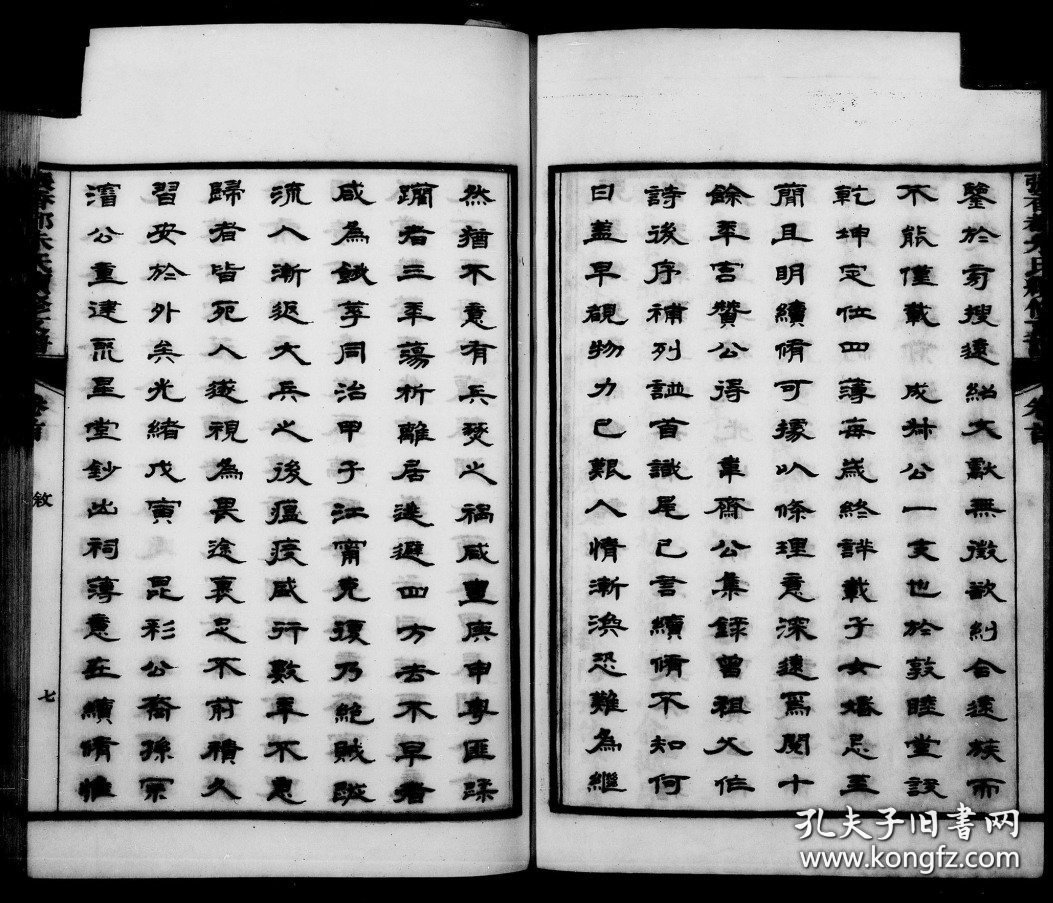 鑒於旁搜遠紹文獻無徵欲糾合遠族而
不能僅載成林公一支也於敦睦堂設
乾坤定位四薄每歲終詳載子女婚忌至
簡且明續脩可據以條理意深遠焉閱十
餘年宮贊公得韋齋公集錄曾祖父作
詩後序補列譜首識尾已言續脩不知何
日蓋早覩物力已艱人情漸渙恐難為繼
然猶不意有兵燹之禍咸豐庚申粵匪蹂
躪者三年蕩析離居逃避四方去不早者
咸為餓莩同治甲子江甯克復乃絕賊蹤
流人漸返大兵之後瘟疫咸行數年不息
歸者皆死人遂視為畏途裹足不前積久
習安於外矣光緒戊寅 昆彩公裔孫
濳公重建聚星堂鈔此祠薄意在續脩惟
卷首
敘
七
孔夫子旧书网
www.kongfz.com